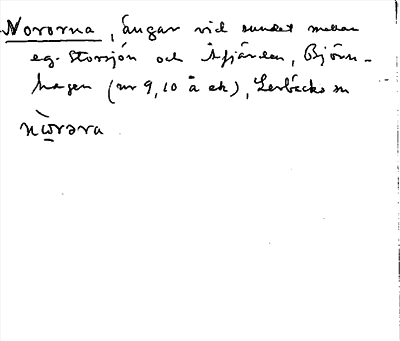 Nororna, ängar vid sundet mellan
eg. Storsjön och Åfjärden, Björn-
hagen (nr 9, 10 å ek), Lerbäcks sn
nωrəra